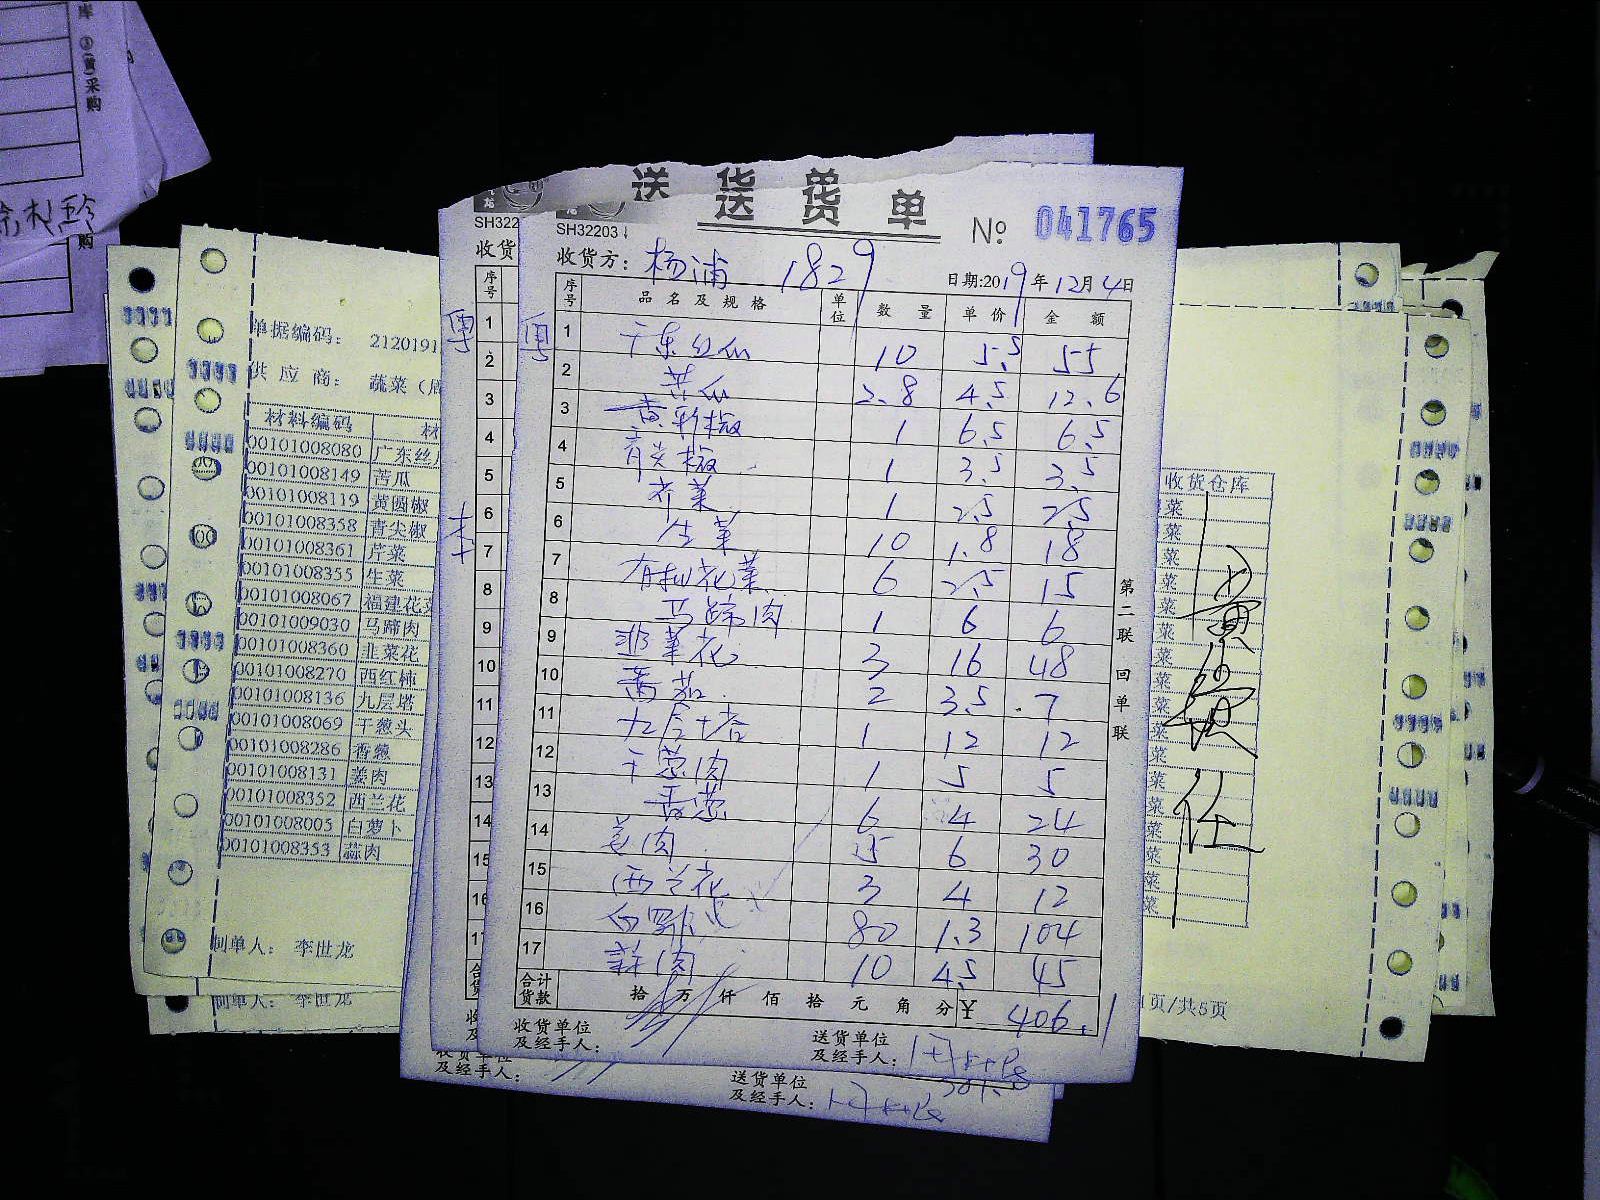 库 ③(黄)采购
购
送货单
SH322
收货
序号
1
2
3
4
5
6
7
8
9
10
11
12
13
14
15
16
17
送货单
SH32203
№ 041765
收货方: 杨浦 1829
日期:2019年12月4日
序号 品名及规格 单位 数量 单价 金额
1 广东丝瓜 10 5.5 55
2 苦瓜 2.8 4.5 12.6
3 黄彩椒 1 6.5 6.5
4 青尖椒 1 3.5 3.5
5 芹菜 1 2.5 2.5
6 生菜 10 1.8 18
7 有机花菜 6 2.5 15
8 马蹄肉 1 6 6
9 韭菜花 3 16 48
10 番茄 2 3.5 7
11 九层塔 1 12 12
12 干葱肉 1 5 5
13 香葱 6 4 24
14 姜肉 5 6 30
15 西兰花 3 4 12
16 白萝卜 80 1.3 104
17 蒜肉 10 4.5 45
合计货款 拾 万 仟 佰 拾 元 角 分 ¥ 406.1
收货单位及经手人:
送货单位及经手人:
第二联 回单联
及经手人:
送货单位及经手人:
单据编码: 2120191
供应商: 蔬菜(
材料编码 材
00101008080 广东丝
00101008149 苦瓜
00101008119 黄圆椒
00101008358 青尖椒
00101008361 芹菜
00101008355 生菜
00101008067 福建花菜
00101009030 马蹄肉
00101008360 韭菜花
00101008270 西红柿
00101008136 九层塔
00101008069 干葱头
00101008286 香葱
00101008131 姜肉
00101008352 西兰花
00101008005 白萝卜
00101008353 蒜肉
制单人: 李世龙
制单人: 李世龙
收货仓库
菜
菜
菜
菜
菜
菜
菜
菜
菜
菜
菜
菜
菜
菜
菜
菜
菜
1页/共5页